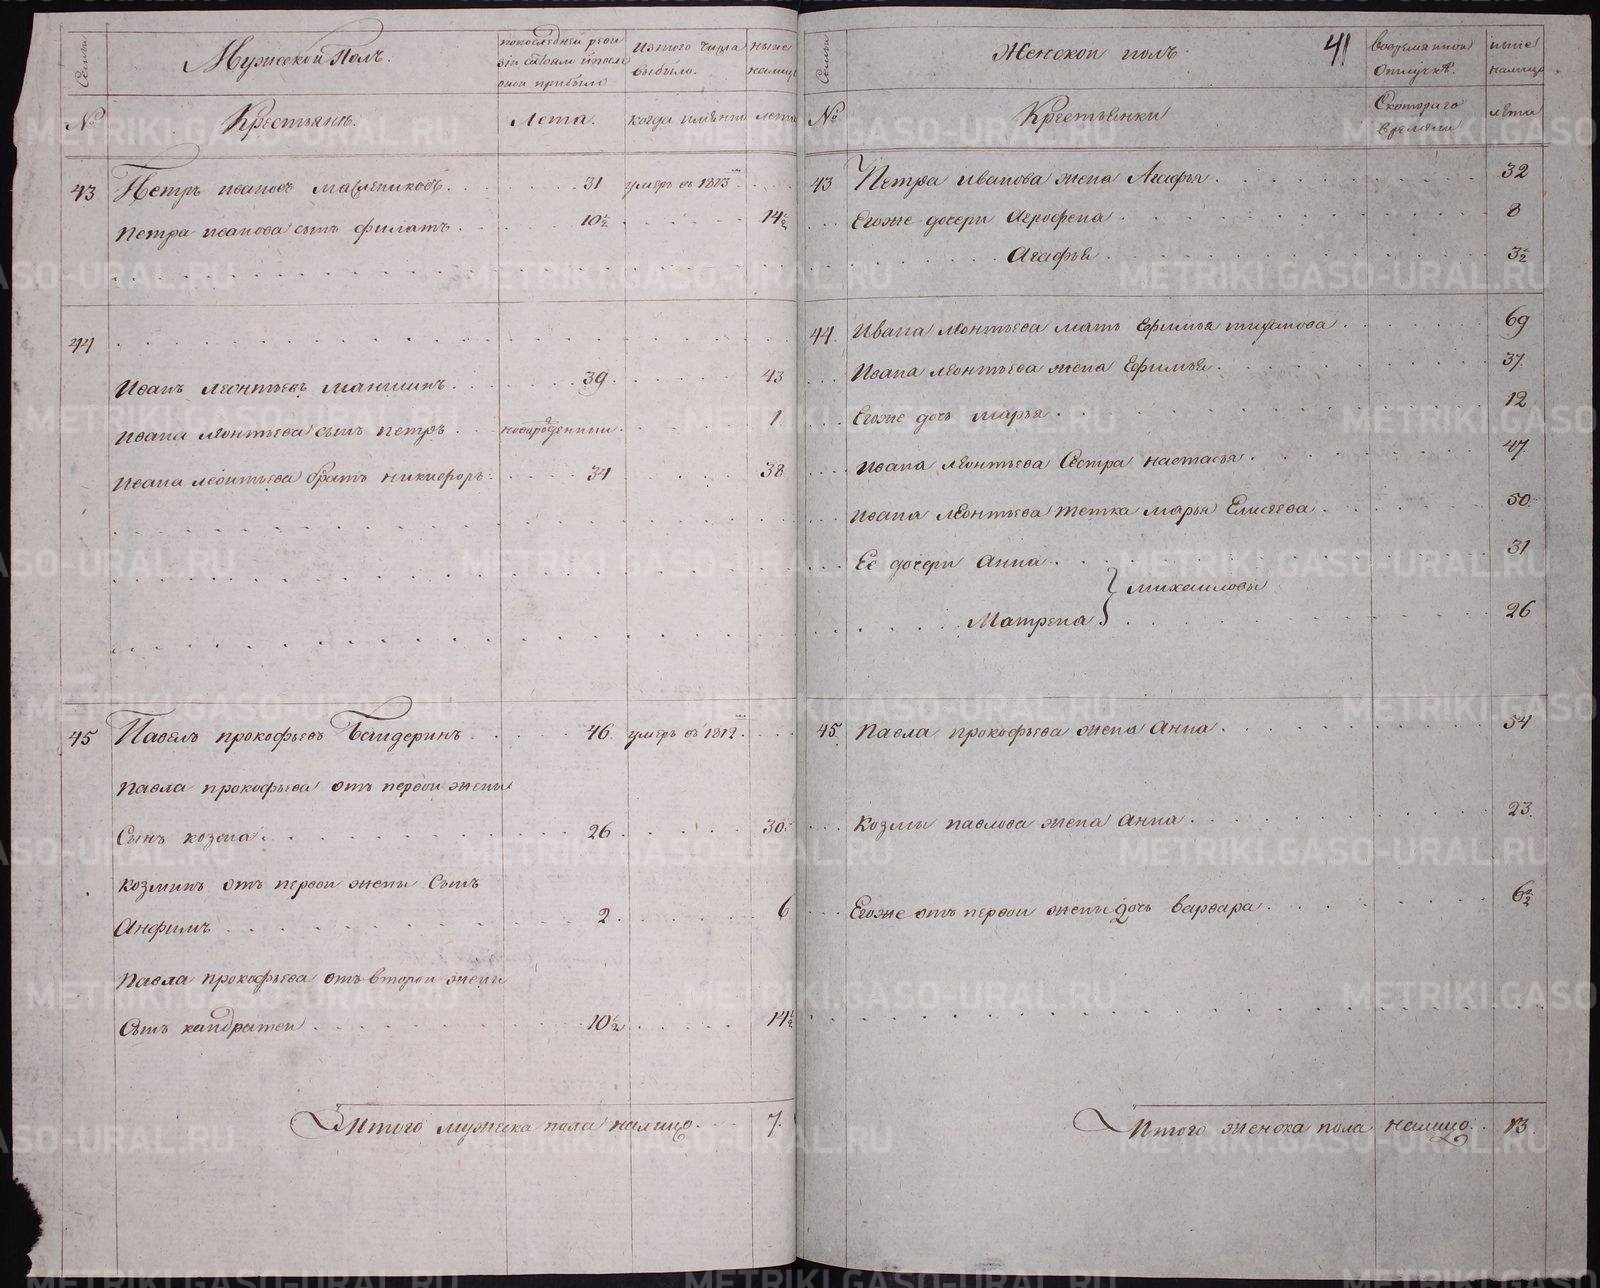 Семьи
Мужеской Полъ.
попоследней реви
зiи состояло ипосле
оной прибыло
Изтого числа
выбыло.
ныне
налицо
№
Крестьянъ.
Лета.
когда имянно
лета
43 Петръ ивановъ маслениковъ. 31 умеръ въ 1813
Петра иванова сынъ филатъ. 10½ 14½
44
Иванъ леонтьевъ маншинъ. 39 43
Ивана леонтьева сынъ петръ новорожденный. 1
Ивана леонтьева братъ никифоръ. 34 38
45 Павелъ прокофьевъ Бандеринъ 46 умеръ въ 1812
Павла прокофьева отъ первой жены
Сынъ козма. 26 30
Козминъ отъ первой жены Сынъ
Анфимъ 2 6
Павла прокофьева отъ второй жены
Сынъ кандратей 10½ 14½
Итого мужеска пола налицо. 7.
Семьи
Женской полъ.
41
Вовременной
Отлучке.
ныне
налицо
№
Крестьянки
Скотораго
времени
лета
43 Петра иванова жена Агафья 32
Егоже дочери Агрофена 8
Агафья 3½
44 Ивана леонтьева мать Ефимья 69
Ивана леонтьева жена Ефимья 37
Егоже дочь марья 12
Ивана леонтьева Сестра настасья 47
Ивана леонтьева тетка марья Елисеева 50
Ее дочери Анна 31
михайловы
Матрена 26
45 Павла прокофьева жена Анна 54
Козмы павлова жена Анна 23
Егоже отъ первой жены дочь варвара 6½
Итого женска пола налицо. 13
METRIKI.GASO-URAL.RU